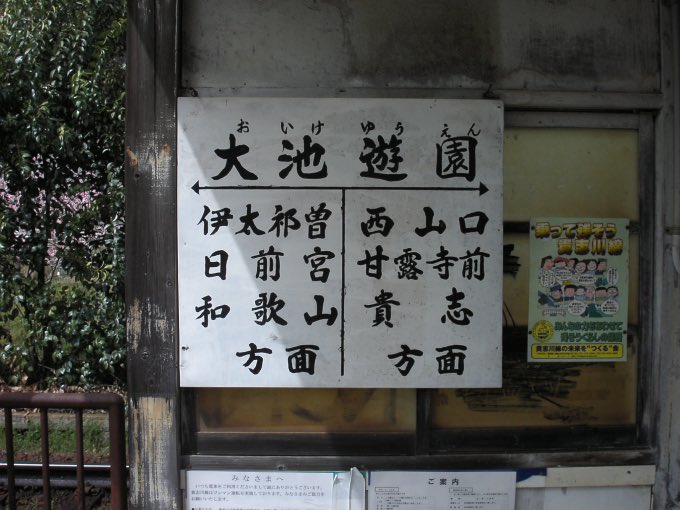 おいけゆうえん
大池遊園
伊太祁曽
日前宮
和歌山
方面
西山口
甘露寺前
貴志
方面
乗って残そう
貴志川線
貴志川線の未来を"つくる"会
みなさまへ
ご案内